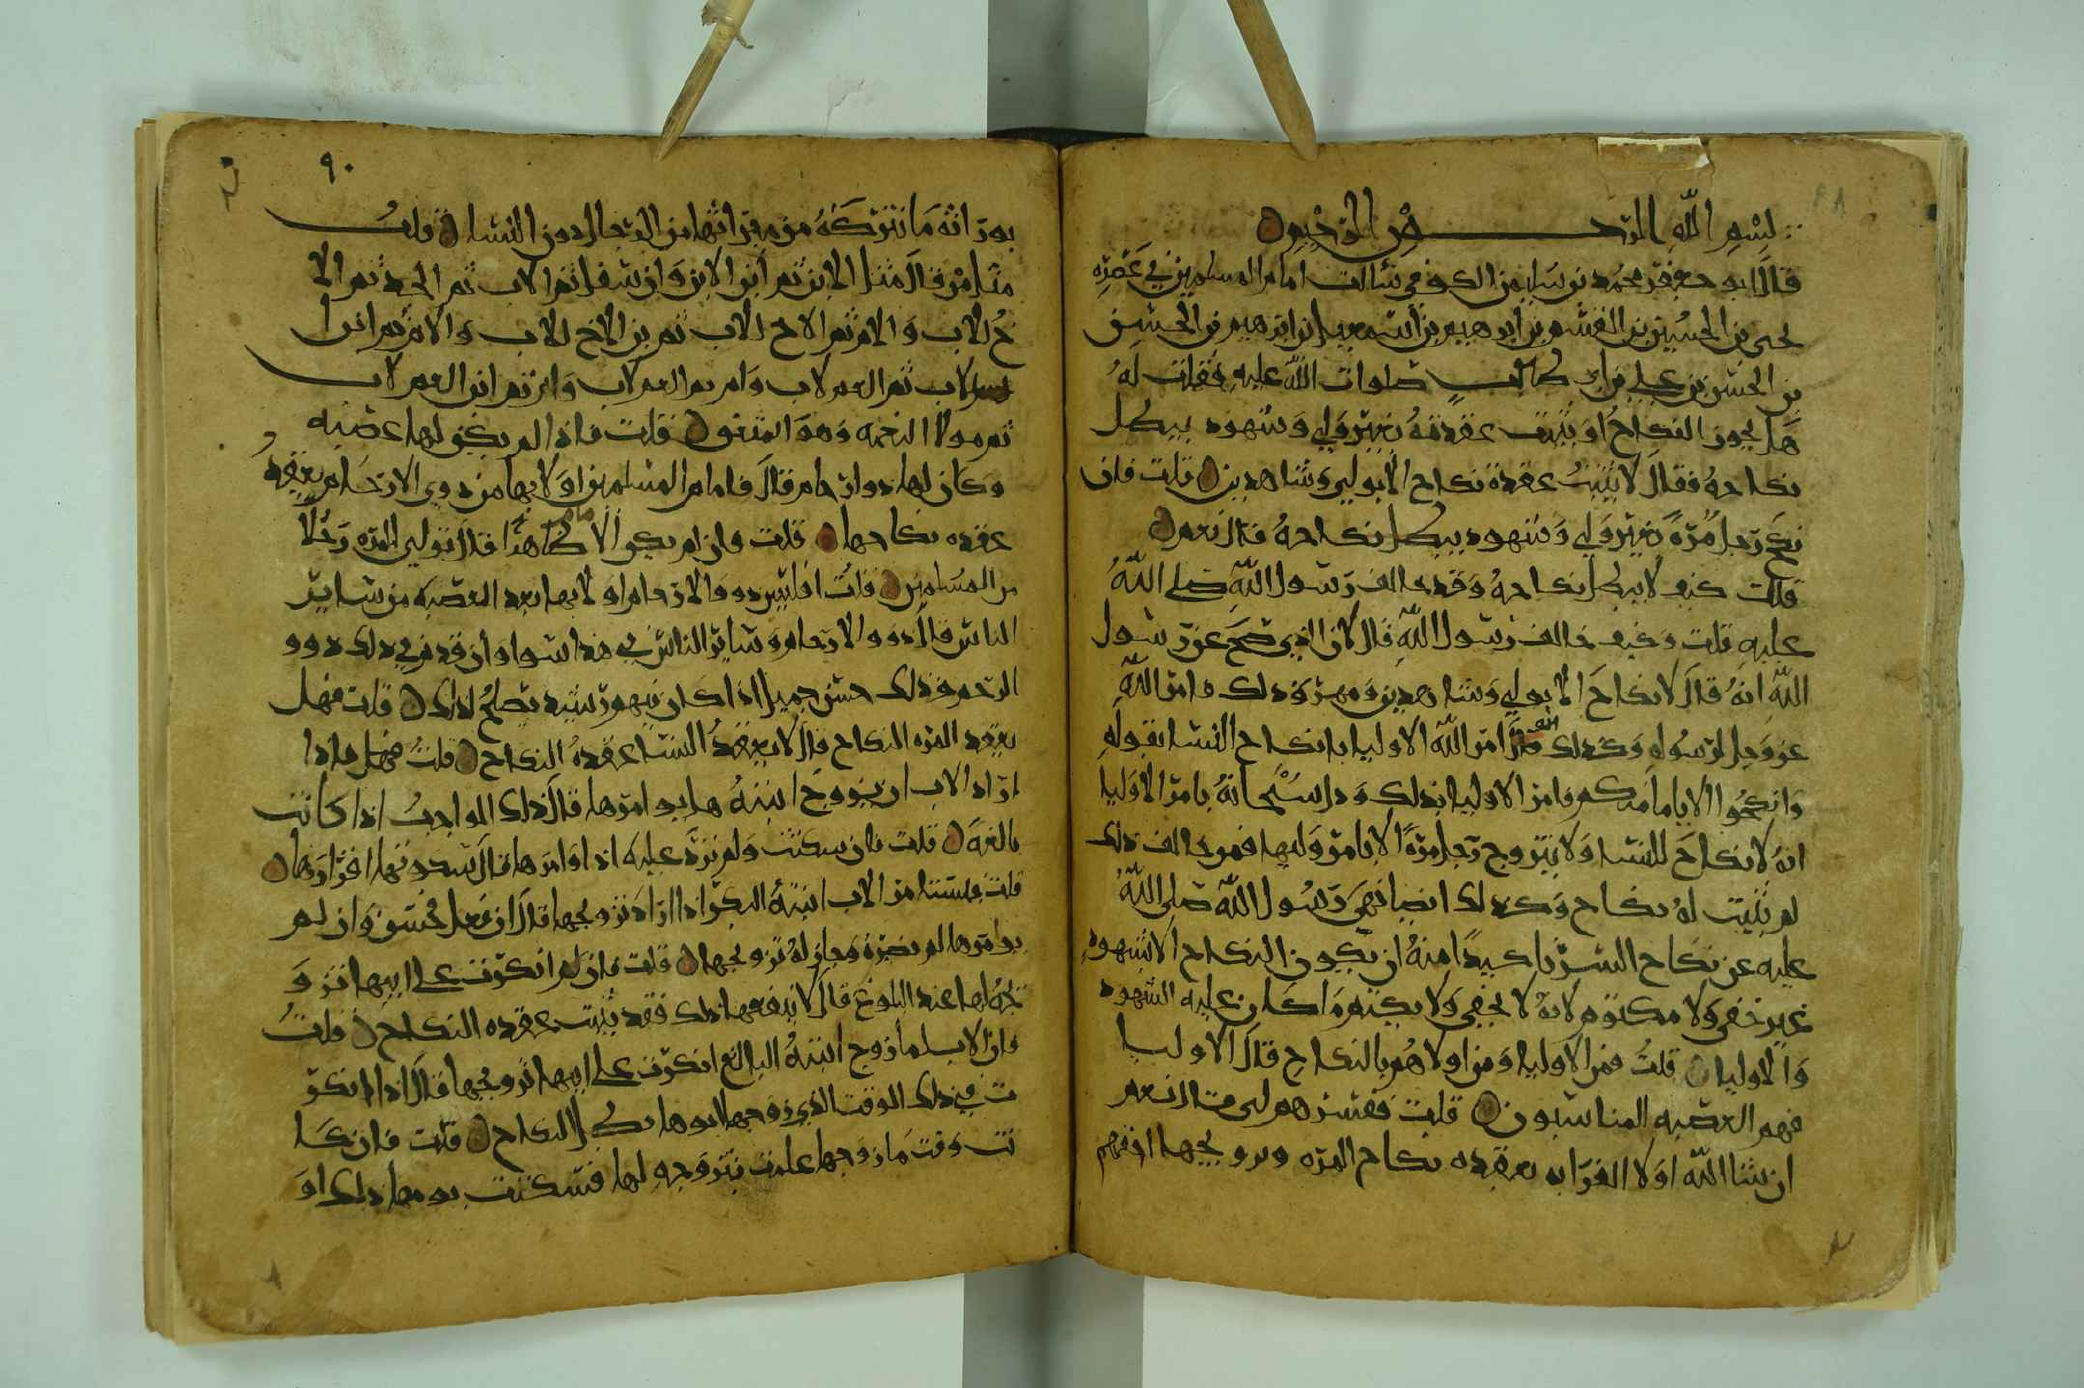 بسم الله الرحمن الرحيم
قال ابو جعفر محمد بن سليمن الكوفي سالت امام المسلمين في عصره
يحيى بن الحسين بن القسم بن ابرهيم بن اسمعيل بن ابرهيم بن الحسن
بن الحسن بن علي بن ابي طالب صلوات الله عليه فقلت له
هل يجوز النكاح او يثبت عقدته بغير ولي وشهود يبطل
نكاحه فقال لا تثبت عقدة نكاح الا بولي وشاهدين قلت فان
نكح رجل مرة بغير ولي وشهود يبطل نكاحه قال نعم
قلت كيف لا يبطل نكاحه وقد خالف رسول الله صلى الله
عليه قلت وكيف خالف رسول الله قال لان الذي صح عن رسول
الله انه قال لا نكاح الا بولي وشاهدين ومهر وذلك فامر الله
عز وجل لرسوله وكذلك امر الله الاوليا بانكاح النسا بقوله
وانكحوا الايامى منكم فامر الاوليا بذلك ودل سبحانه بامر الاوليا
انه لا نكاح للنسا ولا يتزوج رجل مرة الا بامر وليها فمن خالف ذلك
لم يثبت له نكاح وكذلك ايضا نهى رسول الله صلى الله
عليه عن نكاح السر تاكيدا منه ان يكون النكاح الا بشهود
غير خفي ولا مكتوم لانه لا يخفى ولا يكتم ما كان عليه الشهود
والاوليا قلت فمن الاوليا ومن اولاهم بالنكاح قال الاوليا
فهم العصبه المناسبون قلت ففسرهم لي قال نعم
ان شا الله اولا القرابه بعقده نكاح المره وتزويجها اذ فهم
يورثانه ما تتركه من ميراثها من الرجال دون النسا قلت
مثل من قال مثل الابن ثم ابن الابن وان سفل ثم الاب ثم الجد ثم الا
خ للاب والام ثم الاخ للاب ثم بن الاخ للاب والام ثم ابن ا
لاب ثم العم لاب وام ثم العم لاب وابن ثم ابن العم لاب
ثم مولا النعمه وهو المعتق قلت فاذا لم يكن لها عصبه
وكان لها ذوا ارحام قال فامام المسلمين اولا بها من ذوي الارحام بعقد
عقده نكاحها قلت فان لم يكن الامام ظاهرا قال تولي المره رجلا
من المسلمين قلت افليس ذووا الارحام اولا بها بعد العصبه من ساير
الناس قال ذووا الارحام وساير الناس في هذا سوا وان قدم في ذلك ذوو
الرحم فذلك حسن جميل اذا كان فيهم من يصلح لذلك قلت فهل
بعقد المره النكاح قال لا يعقد النسا عقدة النكاح قلت فهل فاذا
اراد الاب ان يزوج ابنته هل يوامرها قال ذلك الواجب اذا كانت
بالغه قلت فان سكتت ولم ترد عليه اذا وامرها قال سكوتها اقرارها
قلت فيستامر الاب ابنته البكر اذا اراد تزويجها قال ان فعل فحسن وان لم
يوامرها لم يضره وجاز له تزويجها قلت فان انكرت على ابيها تزو
يجه لها عند البلوغ قال لا ينفعها ذلك فقد ثبت عقده النكاح قلت
فان الاب لما زوج ابنته البالغ انكرت على ابيها تزويجها قال اذا انكر
ت في ذلك الوقت الذي زوجها ابوها بطل النكاح قلت فان كا
نت وقت ما زوجها علمت بتزوجه لها فسكتت يومها ذلك او
٩٠